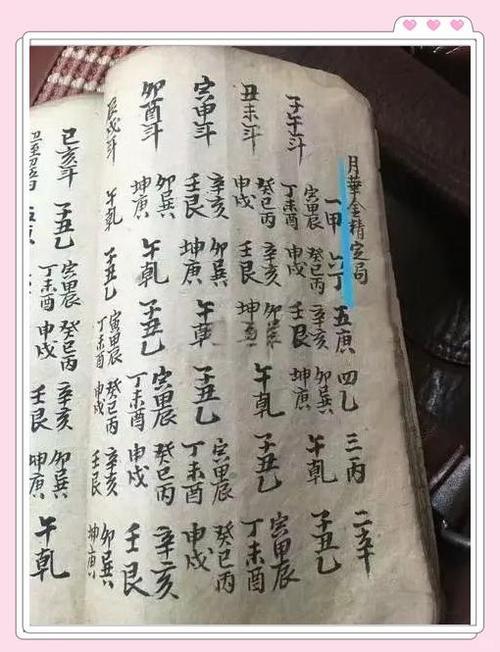 月華金精定局
一甲 六丁 五庚 四乙 三丙 二辛
子午斗 寅甲辰丁未酉 癸巳丙申戌 辛亥壬艮 卯巽坤庚 午乾 子丑乙
丑未斗 癸巳丙申戌 辛亥壬艮 卯巽坤 午乾 子丑乙 寅甲辰丁未酉
寅申斗 辛亥壬艮 卯巽坤庚 午乾 子丑乙 寅甲辰丁未酉 癸巳丙申戌
卯酉斗 卯巽坤庚 午乾 子丑乙 寅甲辰丁未酉 癸巳丙申戌 辛亥壬艮
辰戌斗 午乾 子丑乙 寅甲辰丁未酉 癸巳丙申戌 辛亥壬艮 卯巽坤庚
巳亥斗 子丑乙 寅甲辰丁未酉 癸巳丙申戌 辛亥壬艮 卯巽坤庚 午乾